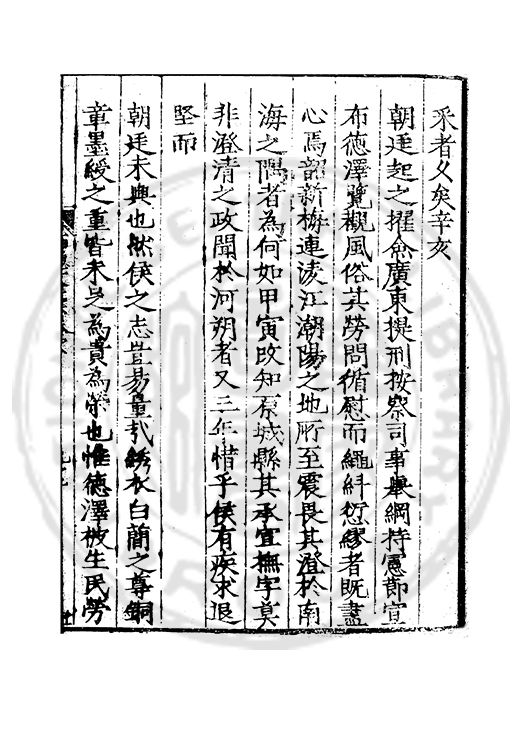 采者久矣辛亥
朝廷起之擢僉廣東提刑按察司事舉綱持憲節宣
布德澤覽觀風俗其勞問循慰而繩糾愆繆者既盡
心焉韶新梅連淩江潮陽之地所至震畏其澄於南
海之隅者為何如甲寅改知原城縣其承宣撫字莫
非澄清之政聞於河朔者又三年惜乎侯有疾求退
堅而
朝廷未興也然侯之志豈易量哉綉衣白簡之尊銅
章墨綬之重皆未足為貴為榮也惟德澤被生民勞